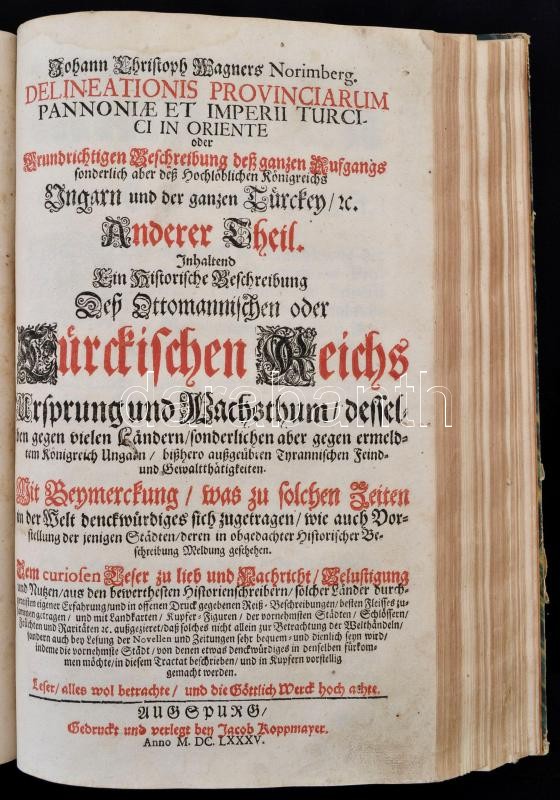 Johann Christoph Wagners Norimberg.
DELINEATIONIS PROVINCIARUM
PANNONIÆ ET IMPERII TURCI-
CI IN ORIENTE
oder
Grundrichtigen Beschreibung deß ganzen Aufgangs
sonderlich aber deß Hochlöblichen Königreichs
Ungarn und der ganzen Türckey/ ꝛc.
Anderer Theil.
Inhaltend
Ein Historische Beschreibung
Deß Ottomannischen oder
Türckischen Reichs
Ursprung und Wachsthum/ dessel-
ben gegen vielen Ländern/ sonderlichen aber gegen ermeld-
tem Königreich Ungarn/ bißhero außgeübten Tyrannischen Feind-
und Gewaltthätigkeiten.
Mit Beymerckung/ was zu solchen Zeiten
in der Welt denckwürdiges sich zugetragen/ wie auch Vor-
stellung der jenigen Städten/ deren in obgedachter Historischer Be-
schreibung Meldung geschehen.
Dem curiosen Leser zu lieb und Nachricht/ Belustigung
und Nutzen/ aus den bewerthesten Historienschreibern/ solcher Länder durch-
reisten eigener Erfahrung/ und in offenen Druck gegebenen Reiß-Beschreibungen/ besten Fleisses zu-
sammen getragen/ und mit Landkarten/ Kupfer-Figuren/ der vornehmsten Städten/ Schlössern/
Früchten und Raritäten ꝛc. außgezieret/ daß solches nicht allein zur Betrachtung der Welthändeln/
sondern auch bey Lesung der Novellen und Zeitungen sehr bequem- und dienlich seyn wird/
indeme die vornehmste Städt/ von denen etwas denckwürdiges in denselben fürkom-
men möchte/ in diesem Tractat beschrieben/ und in Kupfern vorstellig
gemacht werden.
Leser/ alles wol betrachte/ und die Göttlich Werck hoch achte.
AUGSPURG/
Gedruckt und verlegt bey Jacob Koppmayer.
Anno M. DC. LXXXV.
darabanth